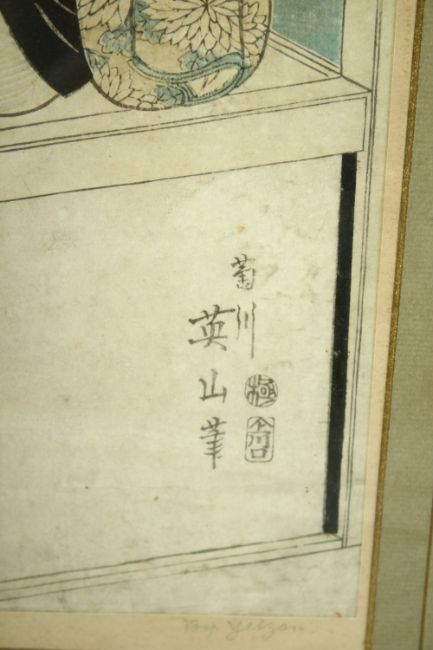 菊川
英山筆
極
川口
By Yeizan